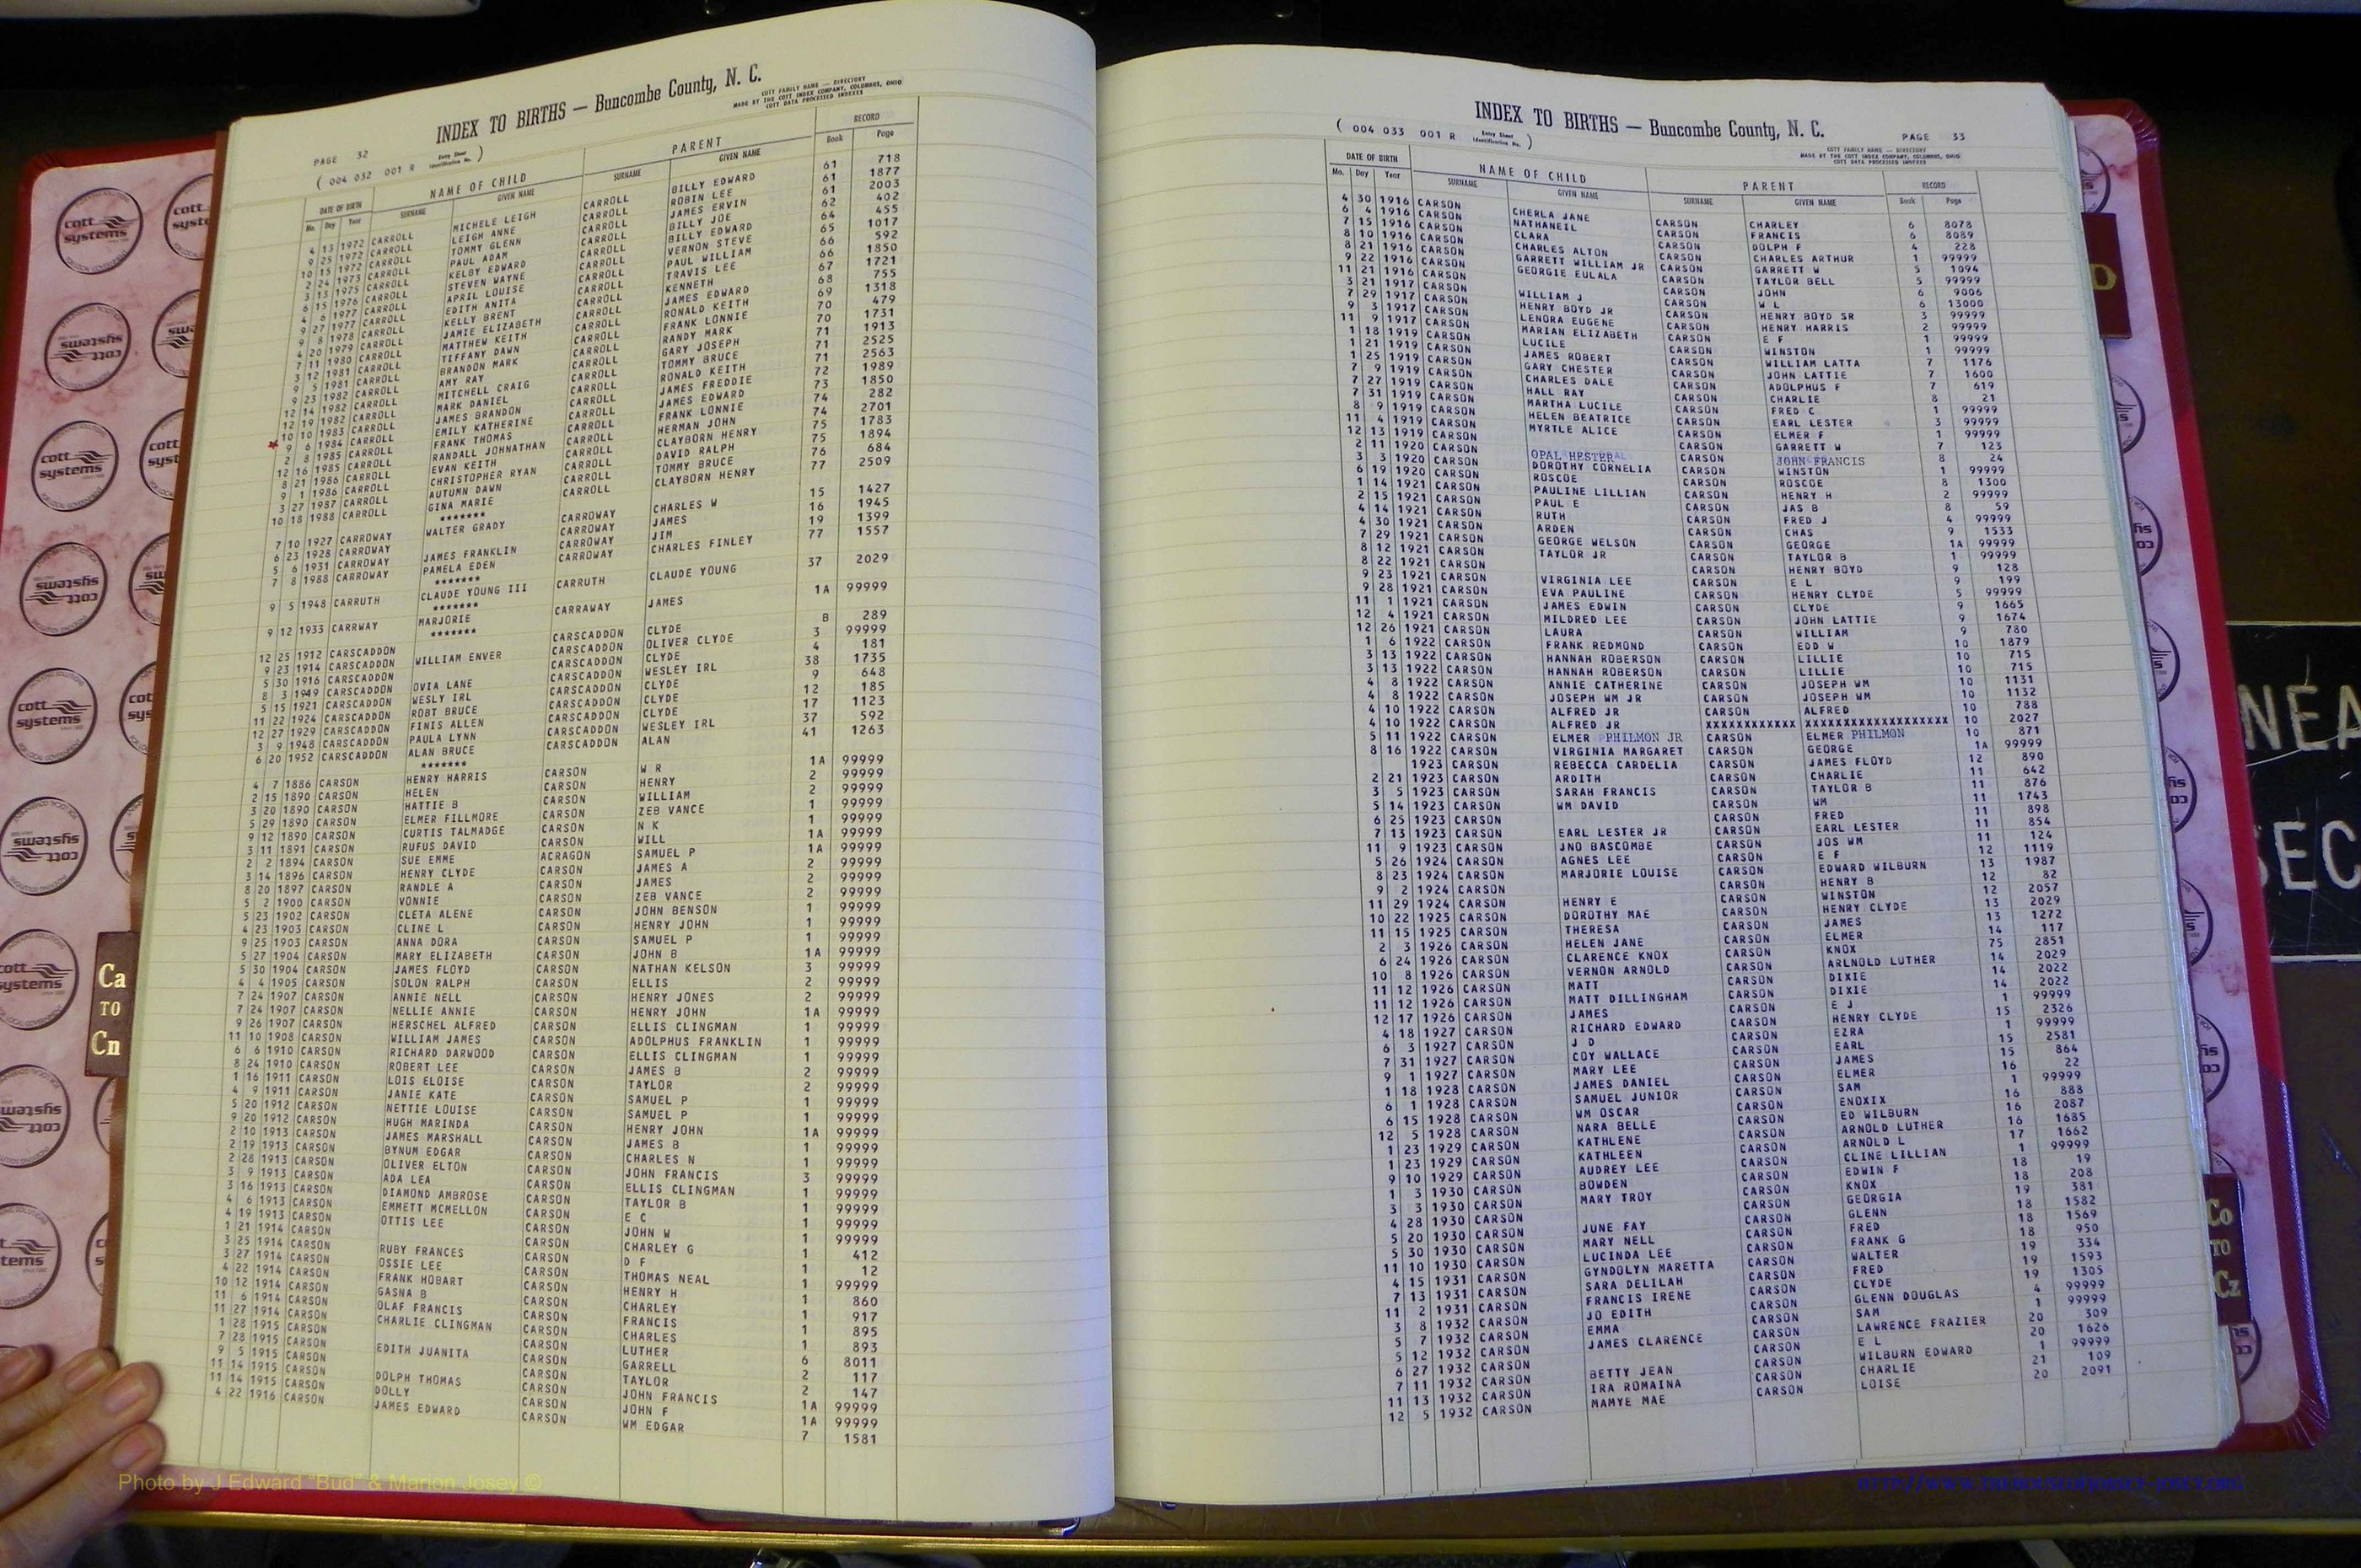 INDEX TO BIRTHS — Buncombe County, N. C.
COTT FAMILY NAME — DIRECTORY
MADE BY THE COTT INDEX COMPANY, COLUMBUS, OHIO
COTT DATA PROCESSED INDEXES
PAGE 32
( 004 032 001 R Entry Sheet Identification No. )
DATE OF BIRTH NAME OF CHILD PARENT RECORD
Mo. Day Year SURNAME GIVEN NAME SURNAME GIVEN NAME Book Page
4 13 1972 CARROLL MICHELE LEIGH CARROLL BILLY EDWARD 61 718
9 25 1972 CARROLL LEIGH ANNE CARROLL ROBIN LEE 61 1877
10 15 1972 CARROLL TOMMY GLENN CARROLL JAMES ERVIN 61 2003
2 24 1973 CARROLL PAUL ADAM CARROLL BILLY JOE 62 402
3 13 1975 CARROLL KELBY EDWARD CARROLL BILLY EDWARD 64 455
6 15 1976 CARROLL STEVEN WAYNE CARROLL VERNON STEVE 65 1017
4 6 1977 CARROLL APRIL LOUISE CARROLL PAUL WILLIAM 66 592
9 27 1977 CARROLL EDITH ANITA CARROLL TRAVIS LEE 66 1850
9 8 1978 CARROLL KELLY BRENT CARROLL KENNETH 67 1721
4 20 1979 CARROLL JAMIE ELIZABETH CARROLL JAMES EDWARD 68 755
7 11 1980 CARROLL MATTHEW KEITH CARROLL RONALD KEITH 69 1318
3 12 1981 CARROLL TIFFANY DAWN CARROLL FRANK LONNIE 70 479
9 5 1981 CARROLL BRANDON MARK CARROLL RANDY MARK 70 1731
9 23 1982 CARROLL AMY RAY CARROLL GARY JOSEPH 71 1913
12 14 1982 CARROLL MITCHELL CRAIG CARROLL TOMMY BRUCE 71 2525
12 19 1982 CARROLL MARK DANIEL CARROLL RONALD KEITH 71 2563
10 10 1983 CARROLL JAMES BRANDON CARROLL JAMES FREDDIE 72 1989
9 6 1984 CARROLL EMILY KATHERINE CARROLL JAMES EDWARD 73 1850
2 8 1985 CARROLL FRANK THOMAS CARROLL FRANK LONNIE 74 282
12 16 1985 CARROLL RANDALL JOHNATHAN CARROLL HERMAN JOHN 74 2701
8 21 1986 CARROLL EVAN KEITH CARROLL CLAYBORN HENRY 75 1783
9 1 1986 CARROLL CHRISTOPHER RYAN CARROLL DAVID RALPH 75 1894
3 27 1987 CARROLL AUTUMN DAWN CARROLL TOMMY BRUCE 76 684
10 18 1988 CARROLL GINA MARIE CARROLL CLAYBORN HENRY 77 2509
*******
7 10 1927 CARROWAY WALTER GRADY CARROWAY CHARLES W 15 1427
6 23 1928 CARROWAY CARROWAY JAMES 16 1945
5 6 1931 CARROWAY JAMES FRANKLIN CARROWAY JIM 19 1399
7 8 1988 CARROWAY PAMELA EDEN CARROWAY CHARLES FINLEY 77 1557
*******
9 5 1948 CARRUTH CLAUDE YOUNG III CARRUTH CLAUDE YOUNG 37 2029
*******
9 12 1933 CARRWAY MARJORIE CARRAWAY JAMES 1A 99999
*******
12 25 1912 CARSCADDON CARSCADDON CLYDE B 289
9 23 1914 CARSCADDON WILLIAM ENVER CARSCADDON OLIVER CLYDE 3 99999
5 30 1916 CARSCADDON CARSCADDON CLYDE 4 181
8 3 1949 CARSCADDON OVIA LANE CARSCADDON WESLEY IRL 38 1735
5 15 1921 CARSCADDON WESLY IRL CARSCADDON CLYDE 9 648
11 22 1924 CARSCADDON ROBT BRUCE CARSCADDON CLYDE 12 185
12 27 1929 CARSCADDON FINIS ALLEN CARSCADDON CLYDE 17 1123
3 9 1948 CARSCADDON PAULA LYNN CARSCADDON WESLEY IRL 37 592
6 20 1952 CARSCADDON ALAN BRUCE CARSCADDON ALAN 41 1263
*******
4 7 1886 CARSON HENRY HARRIS CARSON W R 1A 99999
2 15 1890 CARSON HELEN CARSON HENRY 2 99999
3 20 1890 CARSON HATTIE B CARSON WILLIAM 2 99999
5 29 1890 CARSON ELMER FILLMORE CARSON ZEB VANCE 1 99999
9 12 1890 CARSON CURTIS TALMADGE CARSON N K 1 99999
3 11 1891 CARSON RUFUS DAVID CARSON WILL 1A 99999
2 2 1894 CARSON SUE EMME ACRAGON SAMUEL P 1A 99999
3 14 1896 CARSON HENRY CLYDE CARSON JAMES A 2 99999
8 20 1897 CARSON RANDLE A CARSON JAMES 2 99999
5 2 1900 CARSON VONNIE CARSON ZEB VANCE 2 99999
5 23 1902 CARSON CLETA ALENE CARSON JOHN BENSON 1 99999
4 23 1903 CARSON CLINE L CARSON HENRY JOHN 1 99999
9 25 1903 CARSON ANNA DORA CARSON SAMUEL P 1 99999
5 27 1904 CARSON MARY ELIZABETH CARSON JOHN B 1A 99999
5 30 1904 CARSON JAMES FLOYD CARSON NATHAN KELSON 3 99999
4 4 1905 CARSON SOLON RALPH CARSON ELLIS 2 99999
7 24 1907 CARSON ANNIE NELL CARSON HENRY JONES 2 99999
7 24 1907 CARSON NELLIE ANNIE CARSON HENRY JOHN 1A 99999
9 26 1907 CARSON HERSCHEL ALFRED CARSON ELLIS CLINGMAN 1 99999
11 10 1908 CARSON WILLIAM JAMES CARSON ADOLPHUS FRANKLIN 1 99999
6 6 1910 CARSON RICHARD DARWOOD CARSON ELLIS CLINGMAN 1 99999
8 24 1910 CARSON ROBERT LEE CARSON JAMES B 2 99999
1 16 1911 CARSON LOIS ELOISE CARSON TAYLOR 2 99999
4 9 1911 CARSON JANIE KATE CARSON SAMUEL P 1 99999
5 20 1912 CARSON NETTIE LOUISE CARSON SAMUEL P 1 99999
9 20 1912 CARSON HUGH MARINDA CARSON HENRY JOHN 1A 99999
2 10 1913 CARSON JAMES MARSHALL CARSON JAMES B 1 99999
2 19 1913 CARSON BYNUM EDGAR CARSON CHARLES N 1 99999
2 28 1913 CARSON OLIVER ELTON CARSON JOHN FRANCIS 3 99999
3 9 1913 CARSON ADA LEA CARSON ELLIS CLINGMAN 1 99999
3 16 1913 CARSON DIAMOND AMBROSE CARSON TAYLOR B 1 99999
4 6 1913 CARSON EMMETT MCMELLON CARSON E C 1 99999
4 19 1913 CARSON OTTIS LEE CARSON JOHN W 1 99999
1 21 1914 CARSON CARSON CHARLEY G 1 412
3 25 1914 CARSON RUBY FRANCES CARSON D F 1 12
3 27 1914 CARSON OSSIE LEE CARSON THOMAS NEAL 1 99999
4 22 1914 CARSON FRANK HOBART CARSON HENRY H 1 860
10 12 1914 CARSON GASNA B CARSON CHARLEY 1 917
11 6 1914 CARSON OLAF FRANCIS CARSON FRANCIS 1 895
11 27 1914 CARSON CHARLIE CLINGMAN CARSON CHARLES 1 893
1 28 1915 CARSON CARSON LUTHER 6 8011
7 28 1915 CARSON EDITH JUANITA CARSON GARRELL 2 117
9 5 1915 CARSON CARSON TAYLOR 2 147
11 14 1915 CARSON DOLPH THOMAS CARSON JOHN FRANCIS 1A 99999
11 14 1915 CARSON DOLLY CARSON JOHN F 1A 99999
4 22 1916 CARSON JAMES EDWARD CARSON WM EDGAR 7 1581
INDEX TO BIRTHS — Buncombe County, N. C.
( 004 033 001 R Entry Sheet Identification No. )
PAGE 33
COTT FAMILY NAME — DIRECTORY
MADE BY THE COTT INDEX COMPANY, COLUMBUS, OHIO
COTT DATA PROCESSED INDEXES
DATE OF BIRTH NAME OF CHILD PARENT RECORD
Mo. Day Year SURNAME GIVEN NAME SURNAME GIVEN NAME Book Page
4 30 1916 CARSON CHERLA JANE CARSON CHARLEY 6 8078
6 4 1916 CARSON NATHANEIL CARSON FRANCIS 6 8089
7 15 1916 CARSON CLARA CARSON DOLPH F 4 228
8 10 1916 CARSON CHARLES ALTON CARSON CHARLES ARTHUR 1 99999
8 21 1916 CARSON GARRETT WILLIAM JR CARSON GARRETT W 5 1094
9 22 1916 CARSON GEORGIE EULALA CARSON TAYLOR BELL 5 99999
11 21 1916 CARSON CARSON JOHN 6 9006
3 21 1917 CARSON WILLIAM J CARSON W L 6 13000
7 29 1917 CARSON HENRY BOYD JR CARSON HENRY BOYD SR 3 99999
9 3 1917 CARSON LENORA EUGENE CARSON HENRY HARRIS 2 99999
11 9 1917 CARSON MARIAN ELIZABETH CARSON E F 1 99999
1 18 1919 CARSON LUCILE CARSON WINSTON 1 99999
1 21 1919 CARSON JAMES ROBERT CARSON WILLIAM LATTA 7 1176
1 25 1919 CARSON GARY CHESTER CARSON JOHN LATTIE 7 1600
7 9 1919 CARSON CHARLES DALE CARSON ADOLPHUS F 7 619
7 27 1919 CARSON HALL RAY CARSON CHARLIE 8 21
7 31 1919 CARSON MARTHA LUCILE CARSON FRED C 1 99999
8 9 1919 CARSON HELEN BEATRICE CARSON EARL LESTER 3 99999
11 4 1919 CARSON MYRTLE ALICE CARSON ELMER F 1 99999
12 13 1919 CARSON CARSON GARRETT W 7 123
2 11 1920 CARSON OPAL HESTER CARSON JOHN FRANCIS 8 24
3 3 1920 CARSON DOROTHY CORNELIA CARSON WINSTON 1 99999
6 19 1920 CARSON ROSCOE CARSON ROSCOE 8 1300
1 14 1921 CARSON PAULINE LILLIAN CARSON HENRY H 2 99999
2 15 1921 CARSON PAUL E CARSON JAS B 8 59
4 14 1921 CARSON RUTH CARSON FRED J 4 99999
4 30 1921 CARSON ARDEN CARSON CHAS 9 1533
7 29 1921 CARSON GEORGE WELSON CARSON GEORGE 1A 99999
8 12 1921 CARSON TAYLOR JR CARSON TAYLOR B 1 99999
8 22 1921 CARSON CARSON HENRY BOYD 9 128
9 23 1921 CARSON VIRGINIA LEE CARSON E L 9 199
9 28 1921 CARSON EVA PAULINE CARSON HENRY CLYDE 5 99999
11 1 1921 CARSON JAMES EDWIN CARSON CLYDE 9 1665
12 4 1921 CARSON MILDRED LEE CARSON JOHN LATTIE 9 1674
12 26 1921 CARSON LAURA CARSON WILLIAM 9 780
1 6 1922 CARSON FRANK REDMOND CARSON EDD W 10 1879
3 13 1922 CARSON HANNAH ROBERSON CARSON LILLIE 10 715
3 13 1922 CARSON HANNAH ROBERSON CARSON LILLIE 10 715
4 8 1922 CARSON ANNIE CATHERINE CARSON JOSEPH WM 10 1131
4 8 1922 CARSON JOSEPH WM JR CARSON JOSEPH WM 10 1132
4 10 1922 CARSON ALFRED JR CARSON ALFRED 10 788
4 10 1922 CARSON ALFRED JR XXXXXXXXXXXX XXXXXXXXXXXXXXXXXXX 10 2027
5 11 1922 CARSON ELMER PHILMON JR CARSON ELMER PHILMON 10 871
8 16 1922 CARSON VIRGINIA MARGARET CARSON GEORGE 1A 99999
1923 CARSON REBECCA CARDELIA CARSON JAMES FLOYD 12 890
2 21 1923 CARSON ARDITH CARSON CHARLIE 11 642
3 5 1923 CARSON SARAH FRANCIS CARSON TAYLOR B 11 876
5 14 1923 CARSON WM DAVID CARSON WM 11 1743
6 25 1923 CARSON CARSON FRED 11 898
7 13 1923 CARSON EARL LESTER JR CARSON EARL LESTER 11 854
11 9 1923 CARSON JNO BASCOMBE CARSON JOS WM 11 124
5 26 1924 CARSON AGNES LEE CARSON E F 12 1119
8 23 1924 CARSON MARJORIE LOUISE CARSON EDWARD WILBURN 13 1987
9 2 1924 CARSON CARSON HENRY B 12 82
11 29 1924 CARSON HENRY E CARSON WINSTON 12 2057
10 22 1925 CARSON DOROTHY MAE CARSON HENRY CLYDE 13 2029
11 15 1925 CARSON THERESA CARSON JAMES 13 1272
2 3 1926 CARSON HELEN JANE CARSON ELMER 14 117
6 24 1926 CARSON CLARENCE KNOX CARSON KNOX 75 2851
10 8 1926 CARSON VERNON ARNOLD CARSON ARLNOLD LUTHER 14 2029
11 12 1926 CARSON MATT CARSON DIXIE 14 2022
11 12 1926 CARSON MATT DILLINGHAM CARSON DIXIE 14 2022
12 17 1926 CARSON JAMES CARSON E J 1 99999
4 18 1927 CARSON RICHARD EDWARD CARSON HENRY CLYDE 15 2326
6 3 1927 CARSON J D CARSON EZRA 1 99999
7 31 1927 CARSON COY WALLACE CARSON EARL 15 2581
9 1 1927 CARSON MARY LEE CARSON JAMES 15 864
1 18 1928 CARSON JAMES DANIEL CARSON ELMER 16 22
6 1 1928 CARSON SAMUEL JUNIOR CARSON SAM 1 99999
6 15 1928 CARSON WM OSCAR CARSON ENOXIX 16 888
12 5 1928 CARSON NARA BELLE CARSON ED WILBURN 16 2087
1 23 1929 CARSON KATHLENE CARSON ARNOLD LUTHER 16 1685
1 23 1929 CARSON KATHLEEN CARSON ARNOLD L 17 1662
9 10 1929 CARSON AUDREY LEE CARSON CLINE LILLIAN 1 99999
1 3 1930 CARSON BOWDEN CARSON EDWIN F 18 19
3 3 1930 CARSON MARY TROY CARSON KNOX 18 208
4 28 1930 CARSON CARSON GEORGIA 19 381
5 20 1930 CARSON JUNE FAY CARSON GLENN 18 1582
5 30 1930 CARSON MARY NELL CARSON FRED 18 1569
11 10 1930 CARSON LUCINDA LEE CARSON FRANK G 18 950
4 15 1931 CARSON GYNDOLYN MARETTA CARSON WALTER 19 334
7 13 1931 CARSON SARA DELILAH CARSON FRED 19 1593
11 2 1931 CARSON FRANCIS IRENE CARSON CLYDE 19 1305
3 8 1932 CARSON JO EDITH CARSON GLENN DOUGLAS 4 99999
5 7 1932 CARSON EMMA CARSON SAM 1 99999
5 12 1932 CARSON JAMES CLARENCE CARSON LAWRENCE FRAZIER 20 309
6 27 1932 CARSON CARSON E L 20 1626
7 11 1932 CARSON BETTY JEAN CARSON WILBURN EDWARD 1 99999
11 13 1932 CARSON IRA ROMAINA CARSON CHARLIE 21 109
12 5 1932 CARSON MAMYE MAE CARSON LOISE 20 2091
cott systems
Ca TO Cn
Co TO Cz
Photo by J Edward "Bud" & Marion Josey ©
HTTP://WWW.THEHOUSEOFJOSSEY-JOSEY.ORG